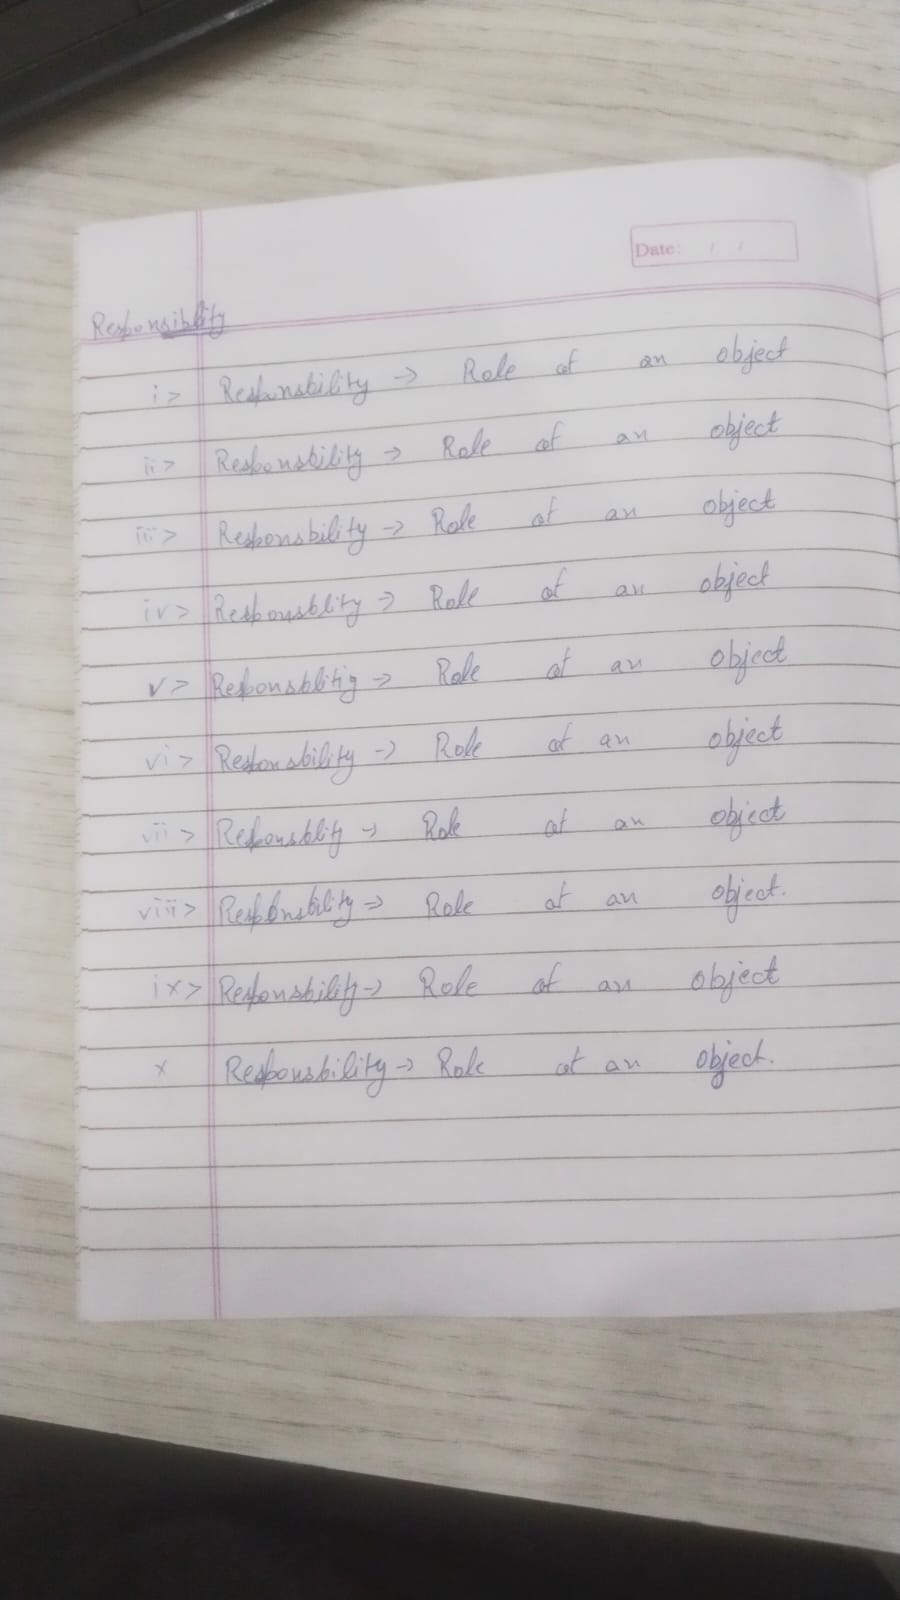 Date: / /
Responsiblity
i> Responsbility → Role of an object
ii> Responsbility → Role of an object
iii> Responsbility → Role of an object
iv> Responsblity → Role of an object
v> Responsblitiy → Role of an object
vi> Responsbility → Role of an object
vii> Responsblity → Role of an object
viii> Responsbility → Role of an object.
ix> Responsbility → Role of an object
x Responsbility → Role of an object.